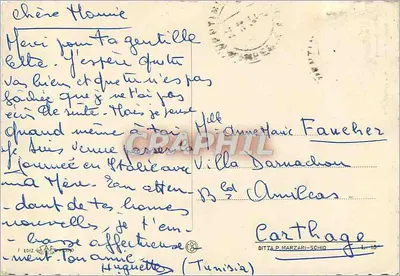 chère Mamie
Merci pour ta gentille
lettre. J'espère que tu
vas bien et que tu n'es pas
fâchée que je ne t'ai pas
de suite. Mais je pense
quand même à toi
Je suis venue passer la
journée en Italie avec
ma Mère. En atten-
dant de tes bonnes
nouvelles, je t'em-
brasse affectueuse-
ment ton amie
Huguette
Melle Anne Marie Faucher
Villa Darnachon
Bld Amilcar
Carthage
(Tunisie)
DITTA P. MARZARI-SCHIO
CARTAPHILIA